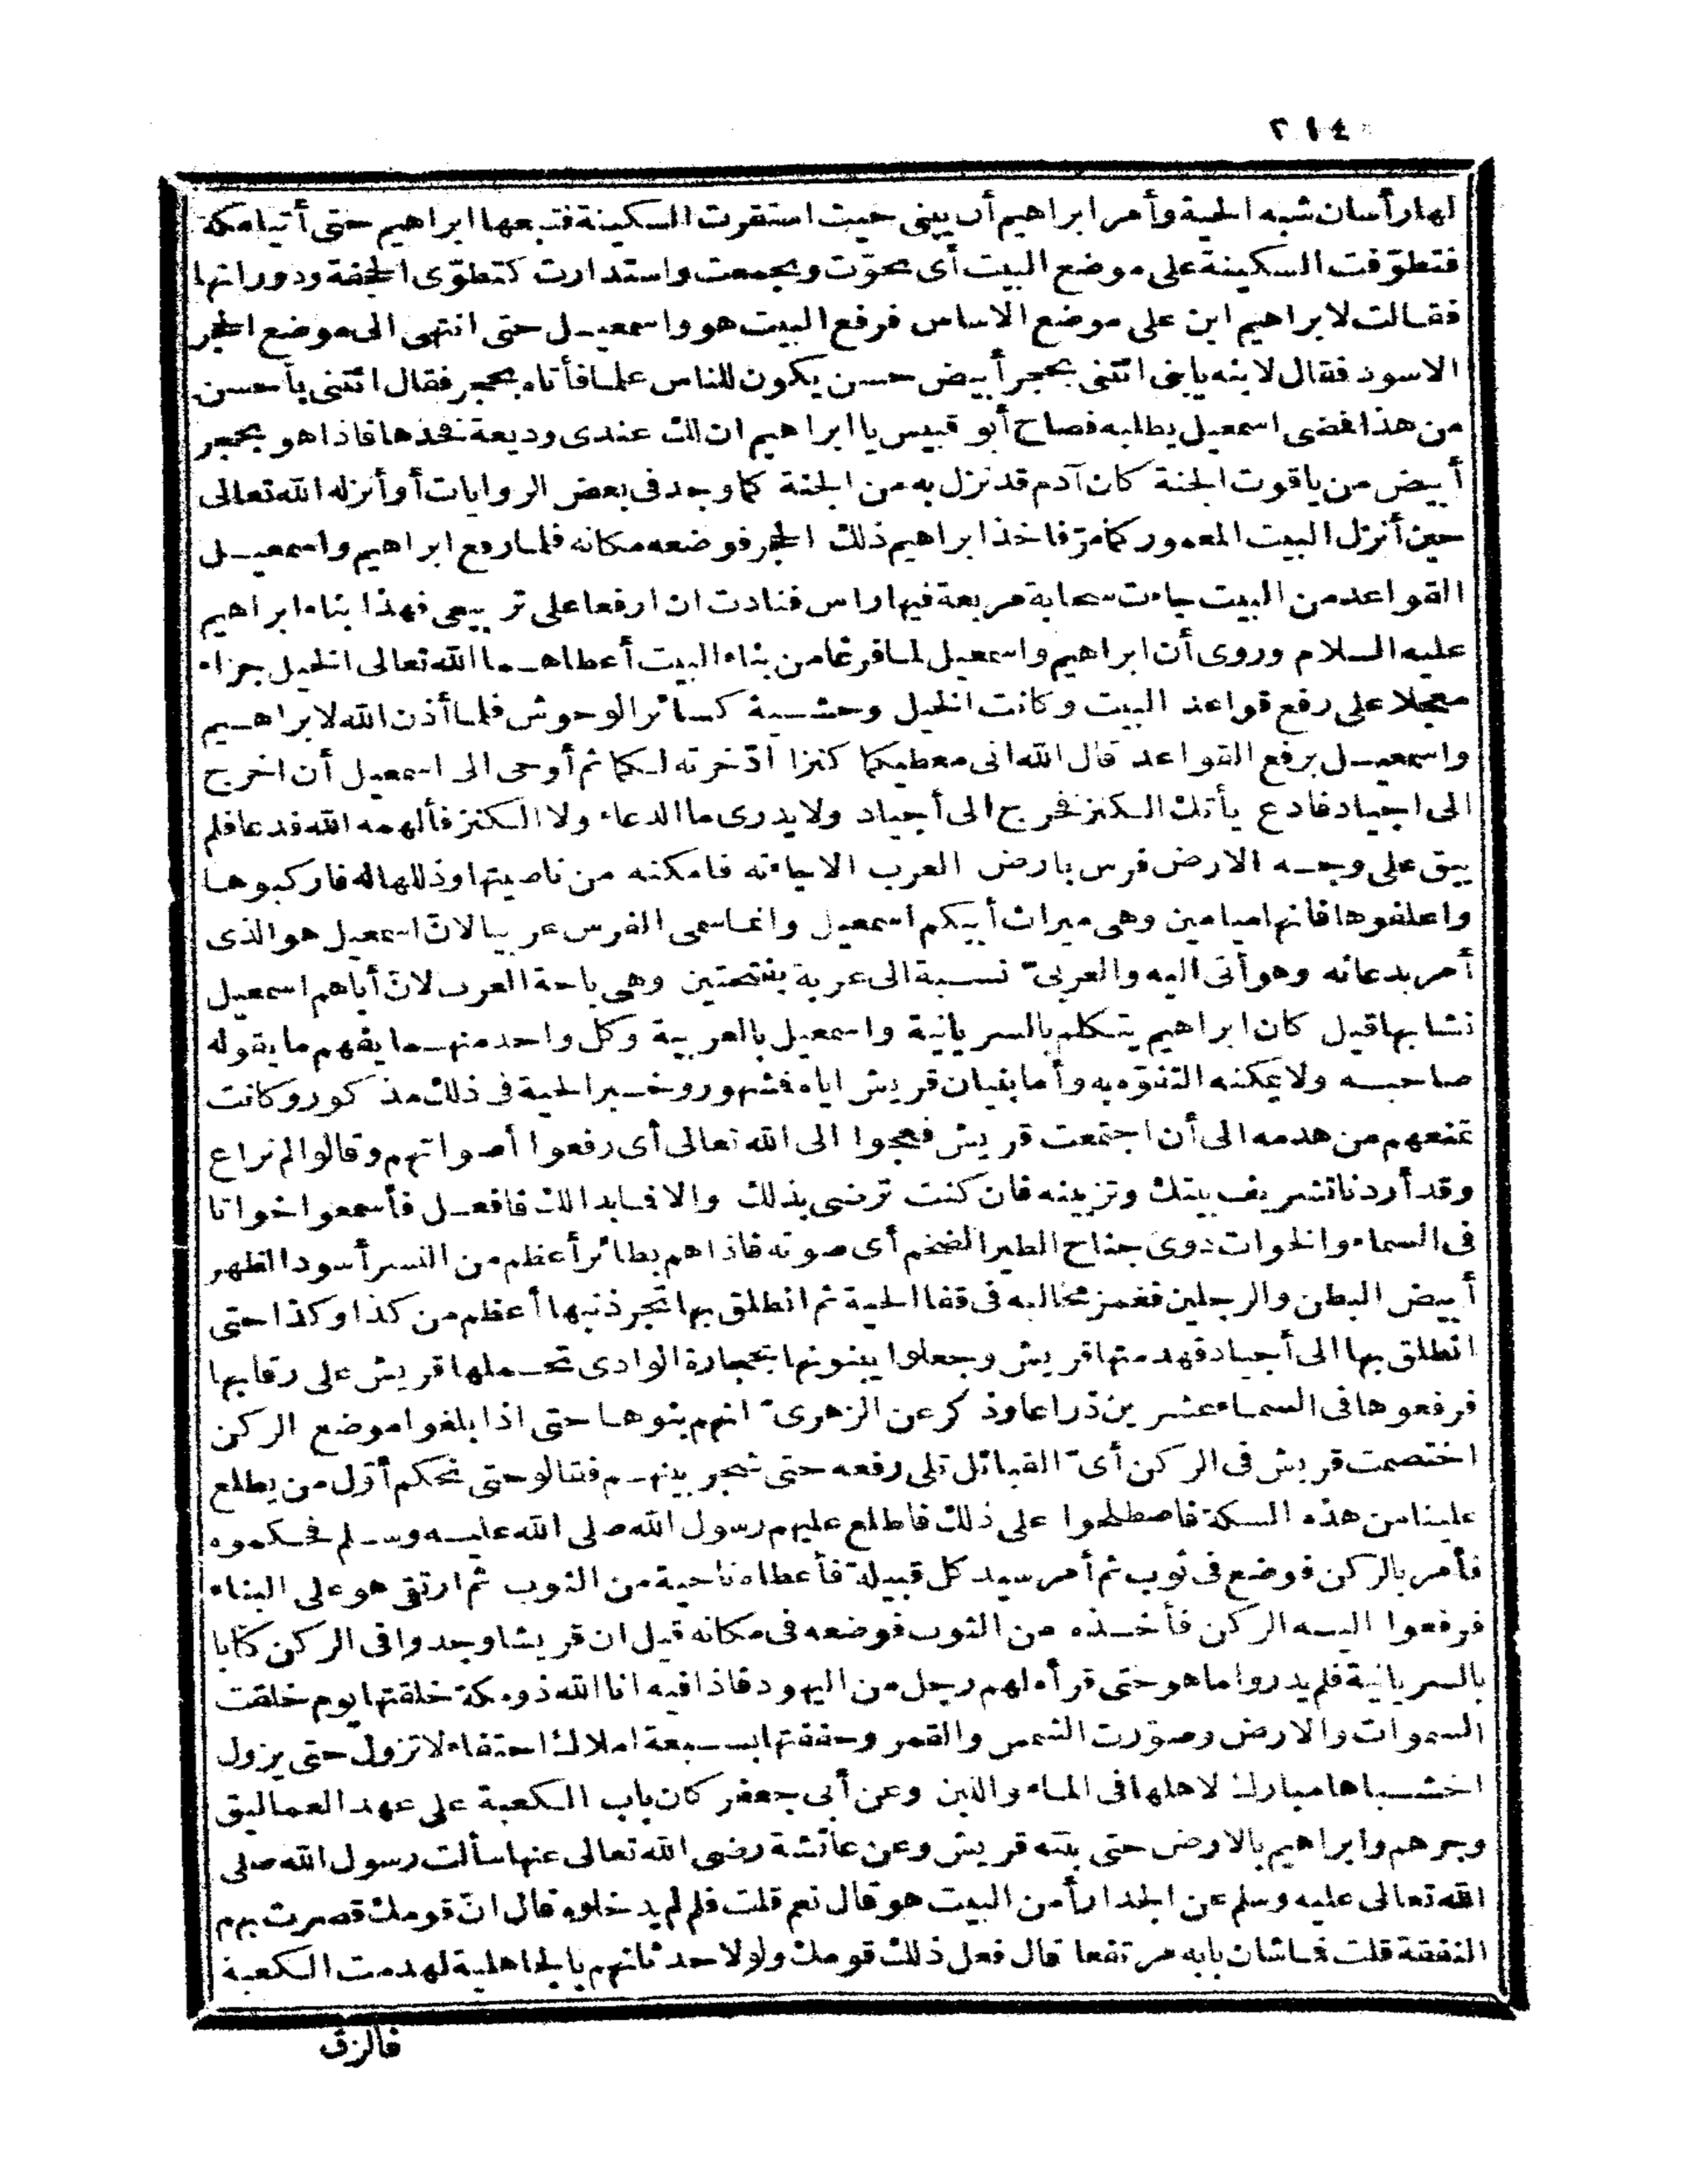 ٢١٤
لها رأسان شبه الحية وأمر ابراهيم أن يبنى حيث استقرت السكينة فتبعها ابراهيم حتى أتيا مكة
فتطوّقت السكينة على موضع البيت أى تحوّت وتجمعت واستدارت كتطوّى الحجفة ودورانها
فقالت لابراهيم ابن على موضع الاساس فرفع البيت هو واسمعيل حتى انتهى الى موضع الحجر
الاسود فقال لابنه يابنى ائتنى بحجر أبيض حسن يكون للناس علما فأتاه بحجر فقال ائتنى بأحسن
من هذا فمضى اسمعيل يطلبه فصاح أبو قبيس يا ابراهيم ان لك عندى وديعة فخذها فاذا هو بحجر
أبيض من ياقوت الجنة كان آدم قد نزل به من الجنة كما وجد فى بعض الروايات أو أنزله الله تعالى
حين أنزل البيت المعمور كما مرّ فاخذ ابراهيم ذلك الحجر فوضعه مكانه فلما رفع ابراهيم واسمعيل
القواعد من البيت جاءت سحابة مربعة فيها راس فنادت ان ارفعا على تربيعى فهذا بناء ابراهيم
عليه السلام وروى أن ابراهيم واسمعيل لما فرغا من بناء البيت أعطاهما الله تعالى الخيل جزاء
معجلا على رفع قواعد البيت وكانت الخيل وحشية كسائر الوحوش فلما أذن الله لابراهيم
واسمعيل برفع القواعد قال الله انى معطيكما كنزا ادّخرته لكما ثم أوحى الى اسمعيل أن اخرج
الى اجياد فادع يأتك الكنز فخرج الى أجياد ولا يدرى ما الدعاء ولا الكنز فألهمه الله فدعا فلم
يبق على وجه الارض فرس بارض العرب الا جاءته فامكنه من ناصيتها وذللها له فاركبوها
واعلفوها فأنها ميامين وهى ميراث أبيكم اسمعيل وانما سمى الفرس عربيا لانّ اسمعيل هو الذى
أمر بدعائه وهو أتى اليه والعربىّ نسبة الى عربة بفتحتين وهى باحة العرب لانّ أباهم اسمعيل
نشا بها قيل كان ابراهيم يتكلم بالسريانية واسمعيل بالعربية وكل واحد منهما يفهم ما يقوله
صاحبه ولا يمكنه التفوّه به وأما بنيان قريش اياه فشهور وخبر الحية فى ذلك مذكور وكانت
تمنعهم من هدمه الى أن اجتمعت قريش فعجوا الى الله تعالى أى رفعوا أصواتهم وقالوا لم نراع
وقد أردنا تشريف بيتك وتزيينه فان كنت ترضى بذلك والا فما بدا لك فافعل فأسمعوا خواتا
فى السماء والخوات دوىّ جناح الطير الضخم أى صوته فاذا هم بطائر أعظم من النسر أسود الظهر
أبيض البطن والرجلين فغمز مخالبه فى قفا الحية ثم انطلق بها تجر ذنبها أعظم من كذا وكذا حتى
انطلق بها الى أجياد فهدمتها قريش وجعلوا يبنونها بحجارة الوادى تحملها قريش على رقابها
فرفعوها فى السماء عشرين ذراعا وذكر عن الزهرىّ انهم بنوها حتى اذا بلغوا موضع الركن
اختصمت قريش فى الركن أىّ القبائل تلى رفعه حتى شجر بينهم فقالوا حتى نحكم أوّل من يطلع
علينا من هذه السكة فاصطلحوا على ذلك فاطلع عليهم رسول الله صلى الله عليه وسلم فحكموه
فأمر بالركن فوضع فى ثوب ثم أمر سيد كل قبيلة فأعطاه ناحية من الثوب ثم ارتقى هو على البناء
فرفعوا اليه الركن فأخذه من الثوب فوضعه فى مكانه قيل ان قريشا وجدوا فى الركن كتابا
بالسريانية فلم يدروا ما هو حتى قرأه لهم رجل من اليهود فاذا فيه انا الله ذو مكة خلقتها يوم خلقت
السموات والارض وصوّرت الشمس والقمر وحففتها بسبعة املاك احتفاء لا تزول حتى يزول
اخشباها مبارك لاهلها فى الماء واللبن وعن أبى جعفر كان باب الكعبة على عهد العماليق
وجرهم وابراهيم بالارض حتى بنته قريش وعن عائشة رضى الله تعالى عنها سألت رسول الله صلى
الله تعالى عليه وسلم عن الجدار أمن البيت هو قال نعم قلت فلم لم يدخلوه قال انّ قومك قصرت بهم
النفقة قلت فما شان بابه مرتفعا قال فعل ذلك قومك ولولا حدثانهم بالجاهلية لهدمت الكعبة
فالزق